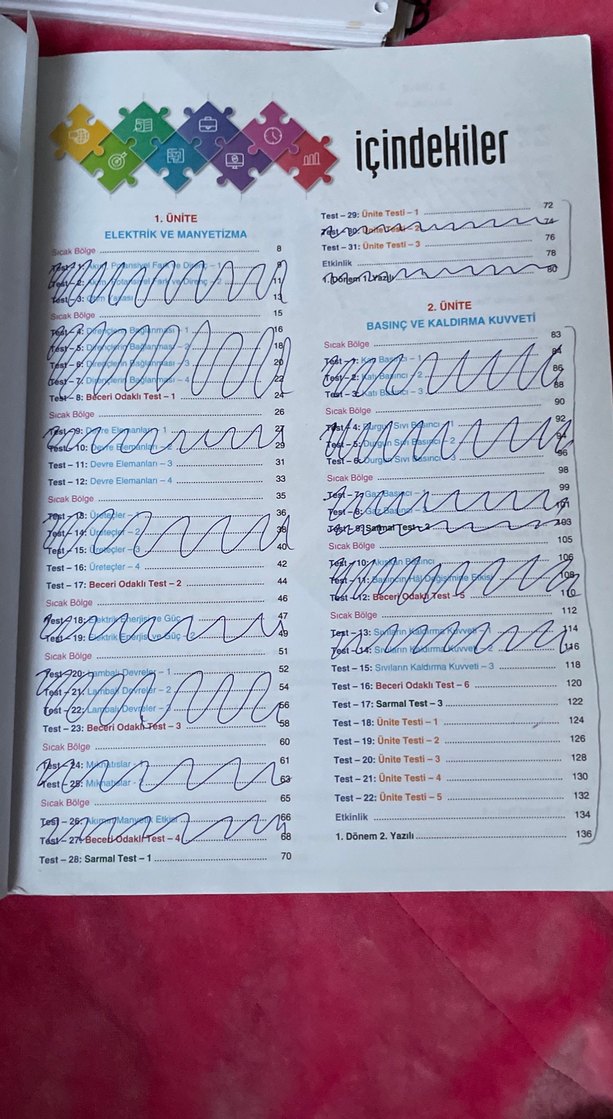 içindekiler
1. ÜNİTE
ELEKTRİK VE MANYETİZMA
Sıcak Bölge 8
Test – 1: Akım, Potansiyel Fark ve Direnç – 1 9
Test – 2: Akım, Potansiyel Fark ve Direnç – 2 11
Test – 3: 13
Sıcak Bölge 15
Test – 4: Dirençlerin Bağlanması – 1 16
Test – 5: Dirençlerin Bağlanması – 2 18
Test – 6: Dirençlerin Bağlanması – 3 20
Test – 7: Dirençlerin Bağlanması – 4 22
Test – 8: Beceri Odaklı Test – 1 24
Sıcak Bölge 26
Test – 9: Devre Elemanları – 1 27
Test – 10: Devre Elemanları – 2 29
Test – 11: Devre Elemanları – 3 31
Test – 12: Devre Elemanları – 4 33
Sıcak Bölge 35
Test – 13: Üreteçler – 1 36
Test – 14: Üreteçler – 2 38
Test – 15: Üreteçler – 3 40
Test – 16: Üreteçler – 4 42
Test – 17: Beceri Odaklı Test – 2 44
Sıcak Bölge 46
Test – 18: Elektrik Enerjisi ve Güç – 1 47
Test – 19: Elektrik Enerjisi ve Güç – 2 49
Sıcak Bölge 51
Test – 20: Lambalı Devreler – 1 52
Test – 21: Lambalı Devreler – 2 54
Test – 22: Lambalı Devreler – 3 56
Test – 23: Beceri Odaklı Test – 3 58
Sıcak Bölge 60
Test – 24: Mıknatıslar – 1 61
Test – 25: Mıknatıslar – 2 63
Sıcak Bölge 65
Test – 26: Akımın Manyetik Etkisi 66
Test – 27: Beceri Odaklı Test – 4 68
Test – 28: Sarmal Test – 1 70
Test – 29: Ünite Testi – 1 72
Test – 30: Ünite Testi – 2 74
Test – 31: Ünite Testi – 3 76
Etkinlik 78
1. Dönem 1. Yazılı 80
2. ÜNİTE
BASINÇ VE KALDIRMA KUVVETİ
Sıcak Bölge 83
Test – 1: Katı Basıncı – 1 84
Test – 2: Katı Basıncı – 2 86
Test – 3: Katı Basıncı – 3 88
Sıcak Bölge 90
Test – 4: Durgun Sıvı Basıncı – 1 92
Test – 5: Durgun Sıvı Basıncı – 2 94
Test – 6: Durgun Sıvı Basıncı – 3 96
Sıcak Bölge 98
Test – 7: Gaz Basıncı – 1 99
Test – 8: Gaz Basıncı – 2 101
Test – 9: Sarmal Test – 2 103
Sıcak Bölge 105
Test – 10: Akışkan Basıncı 106
Test – 11: Basıncın Hâl Değişimine Etkisi 108
Test – 12: Beceri Odaklı Test – 5 110
Sıcak Bölge 112
Test – 13: Sıvıların Kaldırma Kuvveti – 1 114
Test – 14: Sıvıların Kaldırma Kuvveti – 2 116
Test – 15: Sıvıların Kaldırma Kuvveti – 3 118
Test – 16: Beceri Odaklı Test – 6 120
Test – 17: Sarmal Test – 3 122
Test – 18: Ünite Testi – 1 124
Test – 19: Ünite Testi – 2 126
Test – 20: Ünite Testi – 3 128
Test – 21: Ünite Testi – 4 130
Test – 22: Ünite Testi – 5 132
Etkinlik 134
1. Dönem 2. Yazılı 136